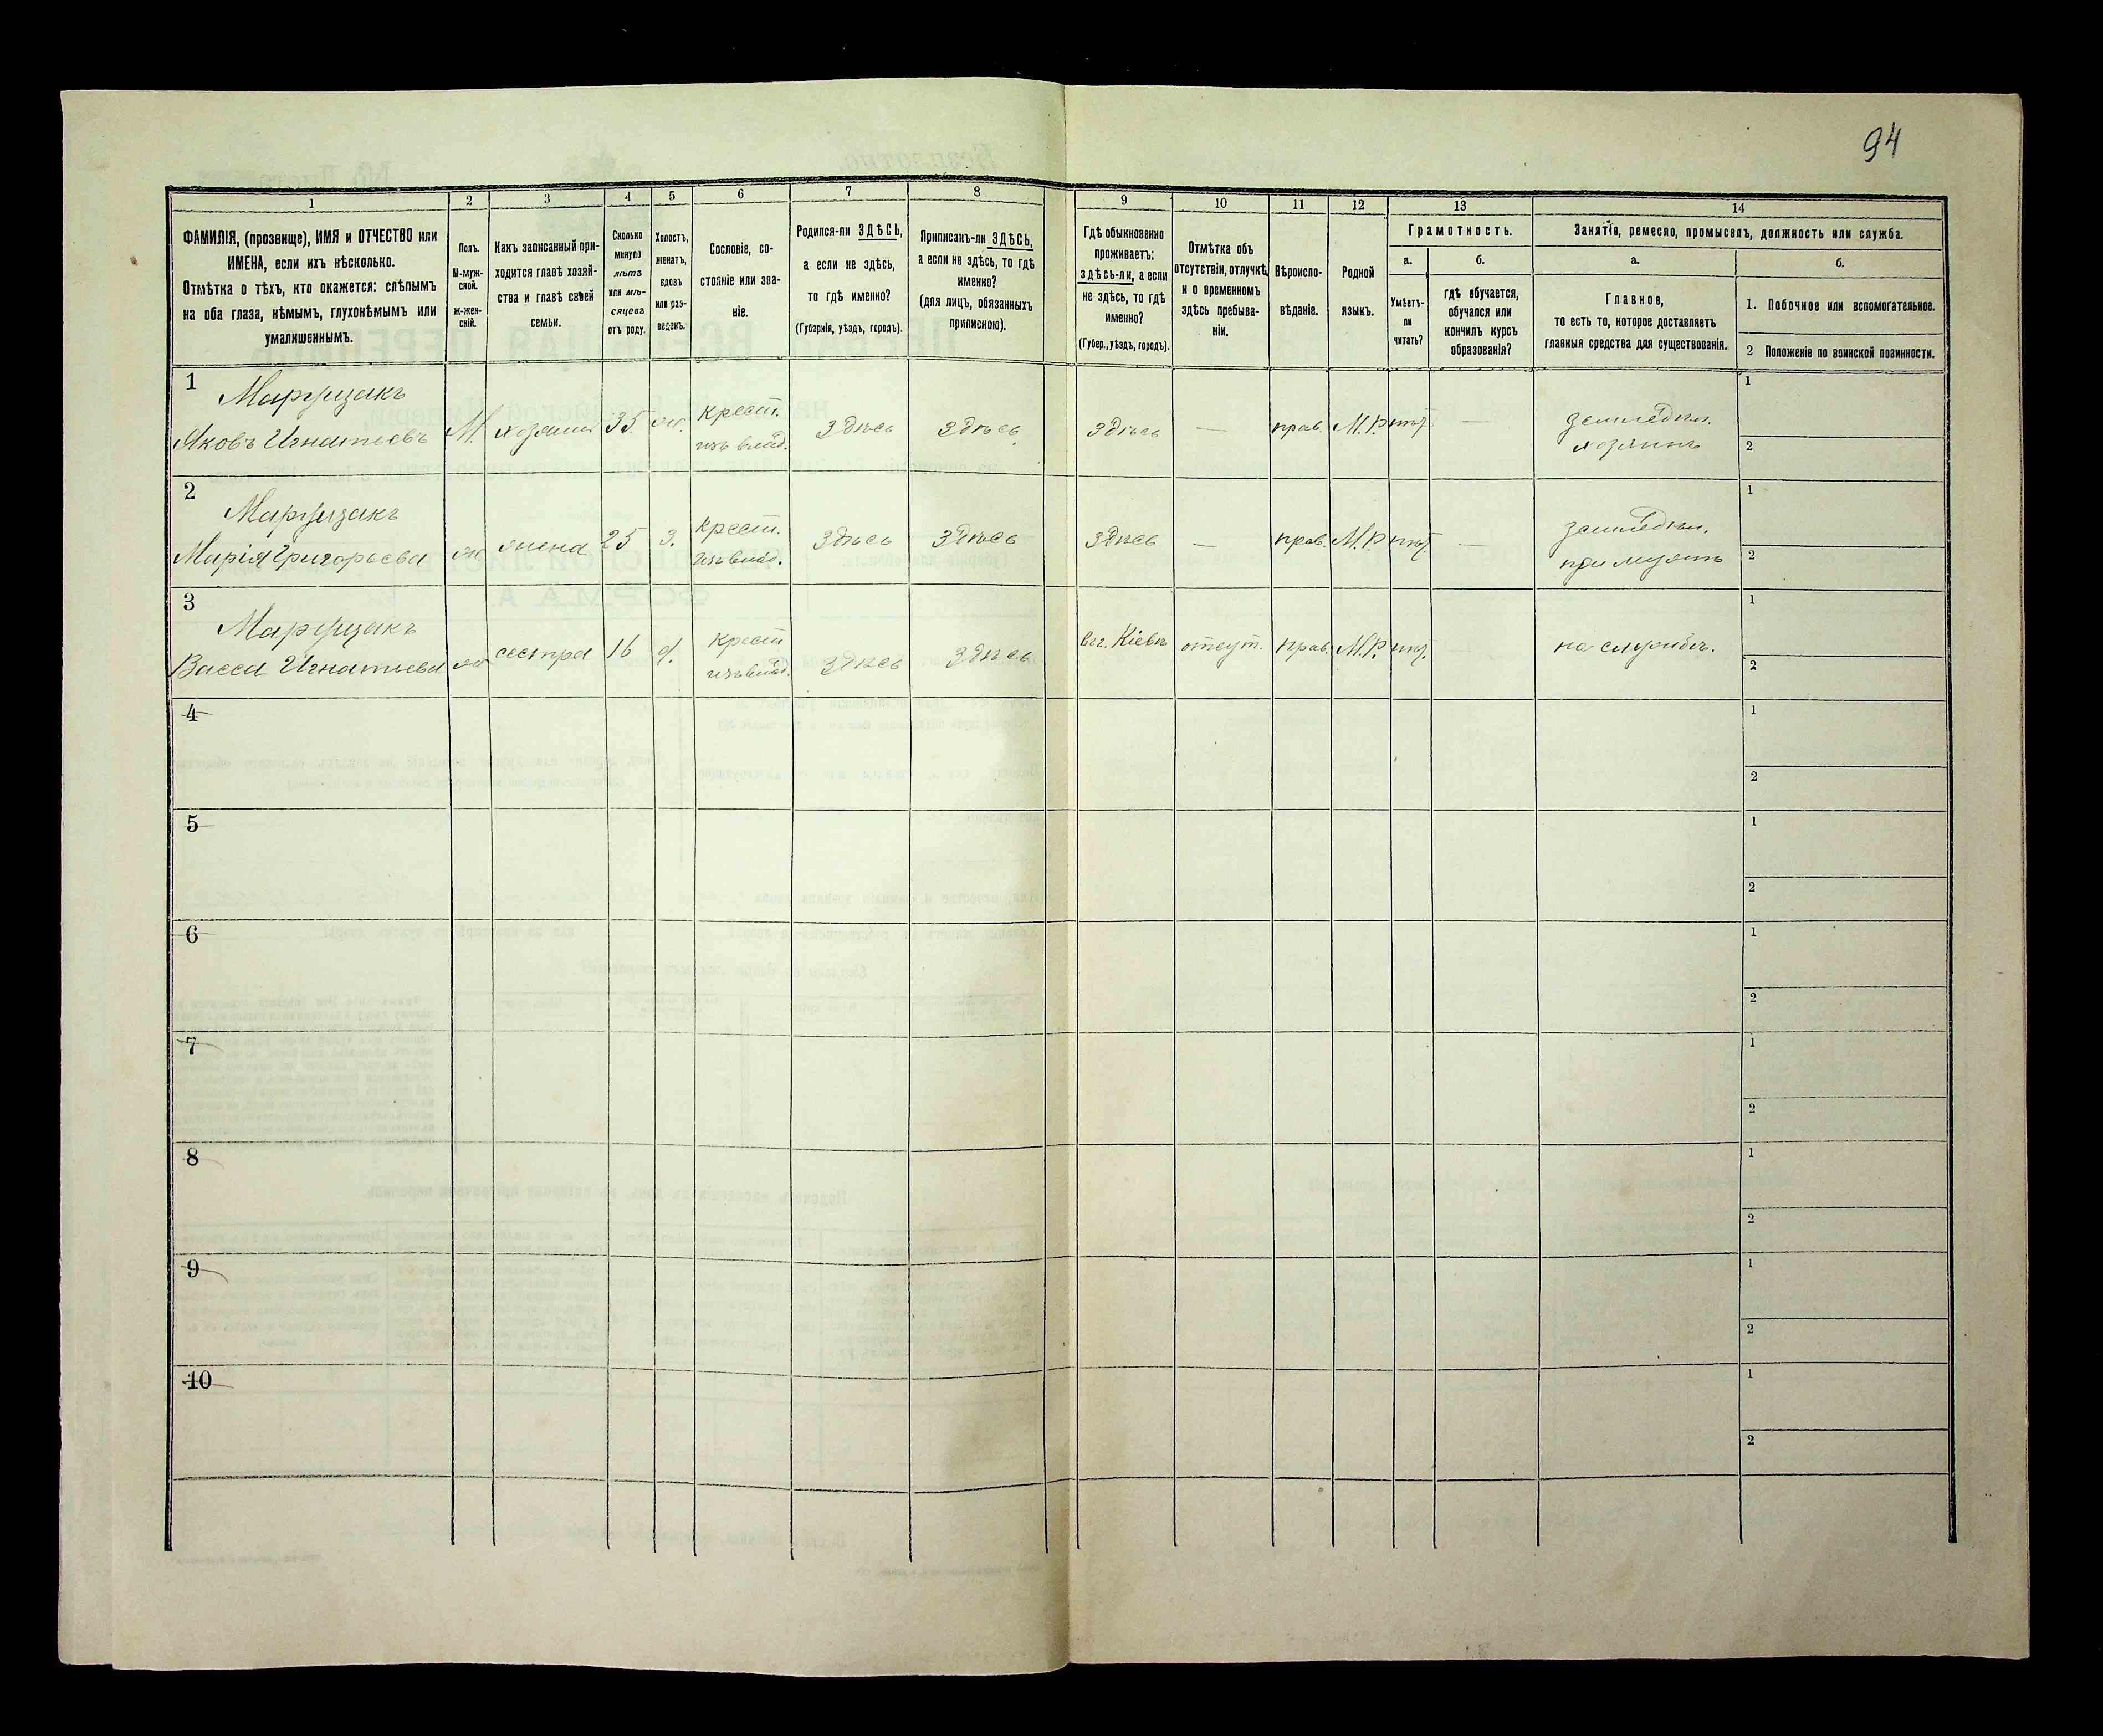 94
1 2 3 4 5 6 7 8 9 10 11 12 13 14
ФАМИЛІЯ, (прозвище), ИМЯ и ОТЧЕСТВО или
ИМЕНА, если ихъ нѣсколько.
Отмѣтка о тѣхъ, кто окажется: слѣпымъ
на оба глаза, нѣмымъ, глухонѣмымъ или
умалишеннымъ.
Полъ.
М-муж-
ской.
ж-жен-
скій.
Какъ записанный при-
ходится главѣ хозяй-
ства и главѣ своей
семьи.
Сколько
минуло
лѣтъ
или мѣ-
сяцевъ
отъ роду.
Холостъ,
женатъ,
вдовъ
или раз-
веденъ.
Сословіе, со-
стояніе или зва-
ніе.
Родился-ли ЗДѢСЬ,
а если не здѣсь,
то гдѣ именно?
(Губернія, уѣздъ, городъ).
Приписанъ-ли ЗДѢСЬ,
а если не здѣсь, то гдѣ
именно?
(для лицъ, обязанныхъ
припискою).
Гдѣ обыкновенно
проживаетъ:
здѣсь-ли, а если
не здѣсь, то гдѣ
именно?
(Губер., уѣздъ, городъ).
Отмѣтка объ
отсутствіи, отлучкѣ
и о временномъ
здѣсь пребыва-
ніи.
Вѣроиспо-
вѣданіе.
Родной
языкъ.
Грамотность.
а.
Умѣетъ-
ли
читать?
б.
гдѣ обучается,
обучался или
кончилъ курсъ
образованія?
Занятіе, ремесло, промыселъ, должность или служба.
а.
Главное,
то есть то, которое доставляетъ
главныя средства для существованія.
б.
1. Побочное или вспомогательное.
2 Положеніе по воинской повинности.
1
Марущакъ
Яковъ Игнатьевъ М. хозяинъ 35 ж. крест. изъ влад. здѣсь здѣсь здѣсь — прав. М.Р. нѣт. — земледѣл. хозяинъ
1
2
2
Марущакъ
Марія Григорьева ж жена 25 З. крест. изъ влад. здѣсь здѣсь здѣсь — прав. М.Р. нѣт. — земледѣл. при мужѣ
1
2
3
Марущакъ
Васса Игнатьева ж сестра 16 д. крест изъ влад. здѣсь здѣсь въ г. Кіевѣ отсут. прав. М.Р. нѣт. — на службѣ.
1
2
4
1
2
5
1
2
6
1
2
7
1
2
8
1
2
9
1
2
10
1
2